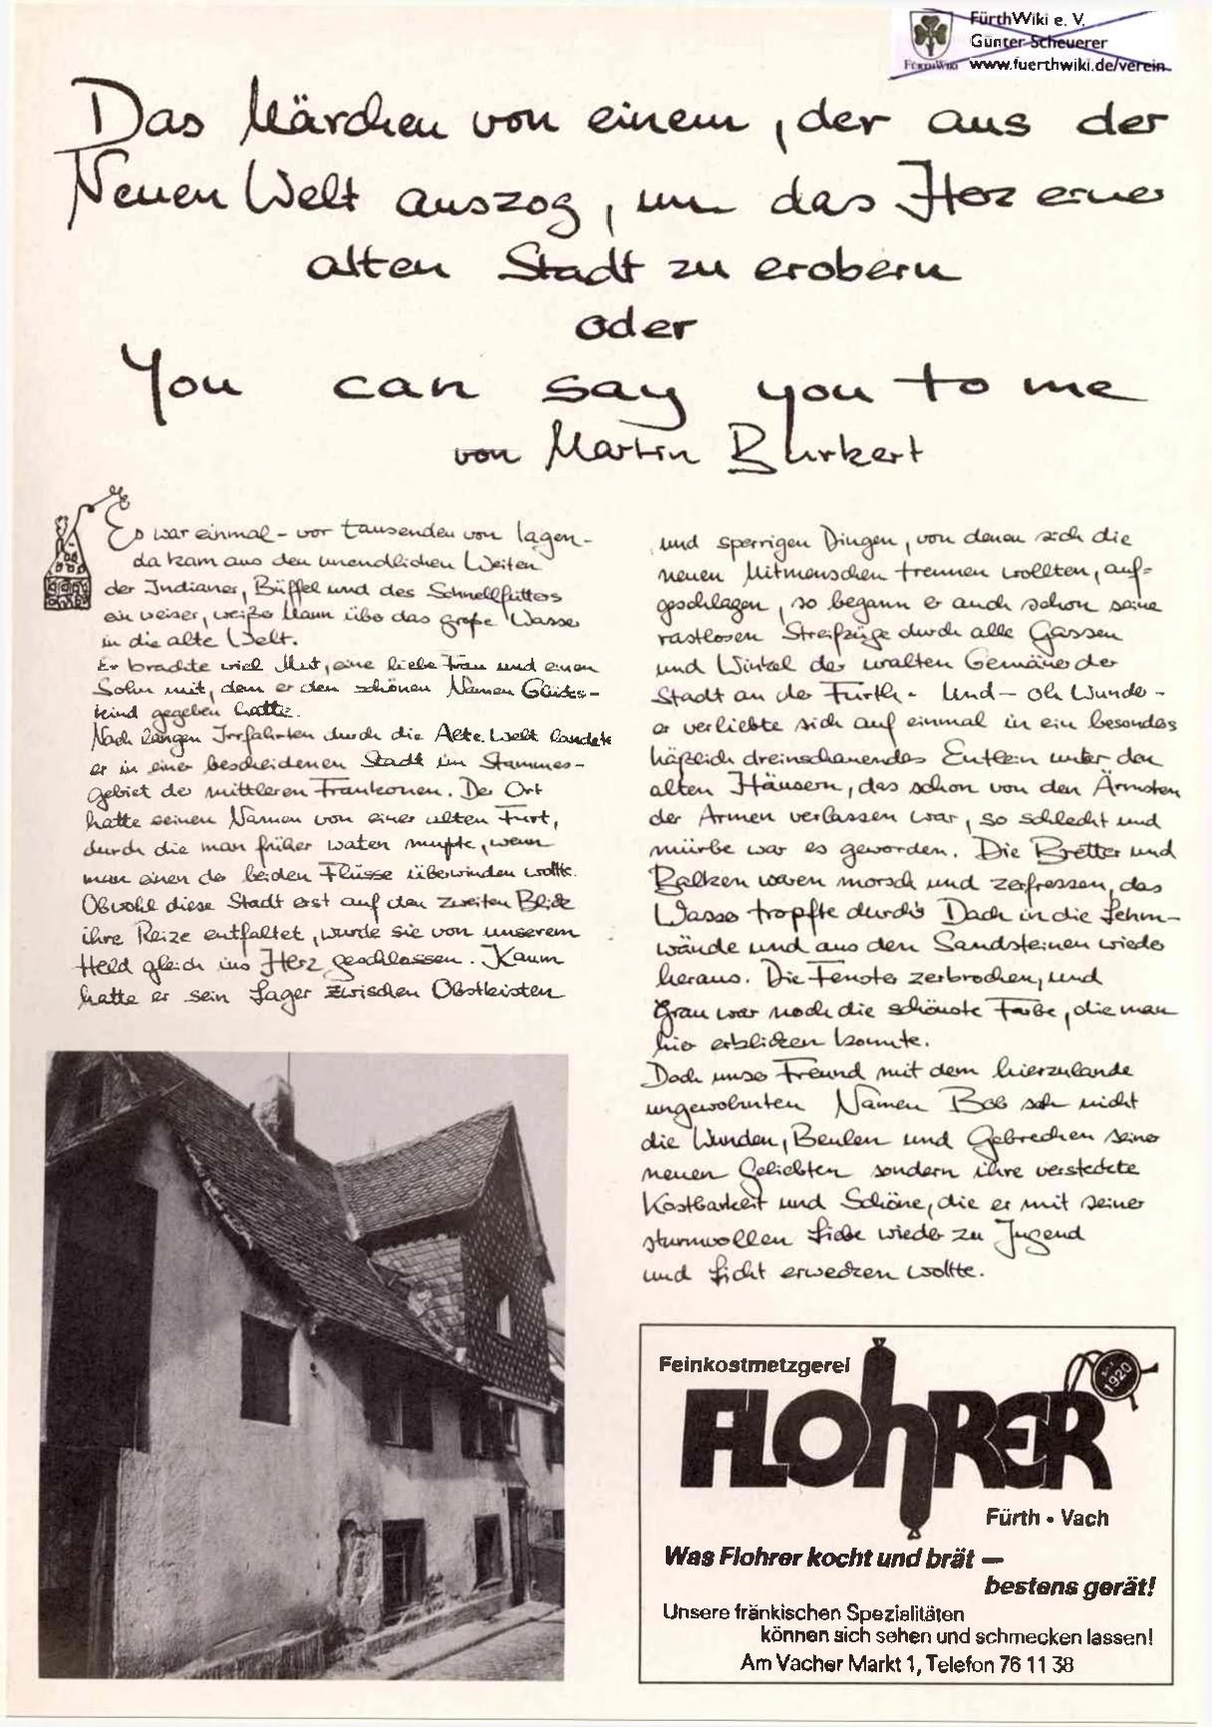 FürthWiki e. V.
Günter Scheuerer
www.fuerthwiki.de/verein
FürthWiki
Das Märchen von einem, der aus der
Neuen Welt auszog, um das Herz einer
alten Stadt zu erobern
oder
You can say you to me
von Martin Burkert
Es war einmal - vor tausenden von Tagen -
da kam aus den unendlichen Weiten
der Indianer, Büffel und des Schnellfutters
ein weiser, weißer Mann über das große Wasser
in die alte Welt.
Er brachte viel Mut, eine liebe Frau und einen
Sohn mit, dem er den schönen Namen Glücks-
kind gegeben hatte.
Nach langen Irrfahrten durch die Alte Welt landete
er in einer bescheidenen Stadt im Stammes-
gebiet der mittleren Frankonen. Der Ort
hatte seinen Namen von einer alten Furt,
durch die man früher waten mußte, wenn
man einen der beiden Flüsse überwinden wollte.
Obwohl diese Stadt erst auf den zweiten Blick
ihre Reize entfaltet, wurde sie von unserem
Held gleich ins Herz geschlossen. Kaum
hatte er sein Lager zwischen Obstkisten
und sperrigen Dingen, von denen sich die
neuen Mitmenschen trennen wollten, auf=
geschlagen, so begann er auch schon seine
rastlosen Streifzüge durch alle Gassen
und Winkel der uralten Gemäuer der
Stadt an der Fürth. Und - oh Wunder -
er verliebte sich auf einmal in ein besonders
häßlich dreinschauendes Entlein unter den
alten Häusern, das schon von den Ärmsten
der Armen verlassen war, so schlecht und
mürbe war es geworden. Die Bretter und
Balken waren morsch und zerfressen, das
Wasser tropfte durch's Dach in die Lehm-
wände und aus den Sandsteinen wieder
heraus. Die Fenster zerbrochen, und
Grau war noch die schönste Farbe, die man
hier erblicken konnte.
Doch unser Freund mit dem hierzulande
ungewohnten Namen Bob sah nicht
die Wunden, Beulen und Gebrechen seiner
neuen Geliebten sondern ihre versteckte
Kostbarkeit und Schöne, die er mit seiner
sturmvollen Liebe wieder zu Jugend
und Licht erwecken wollte.
Feinkostmetzgerei
FLOhRER
1920
Fürth • Vach
Was Flohrer kocht und brät —
bestens gerät!
Unsere fränkischen Spezialitäten
können sich sehen und schmecken lassen!
Am Vacher Markt 1, Telefon 76 11 38